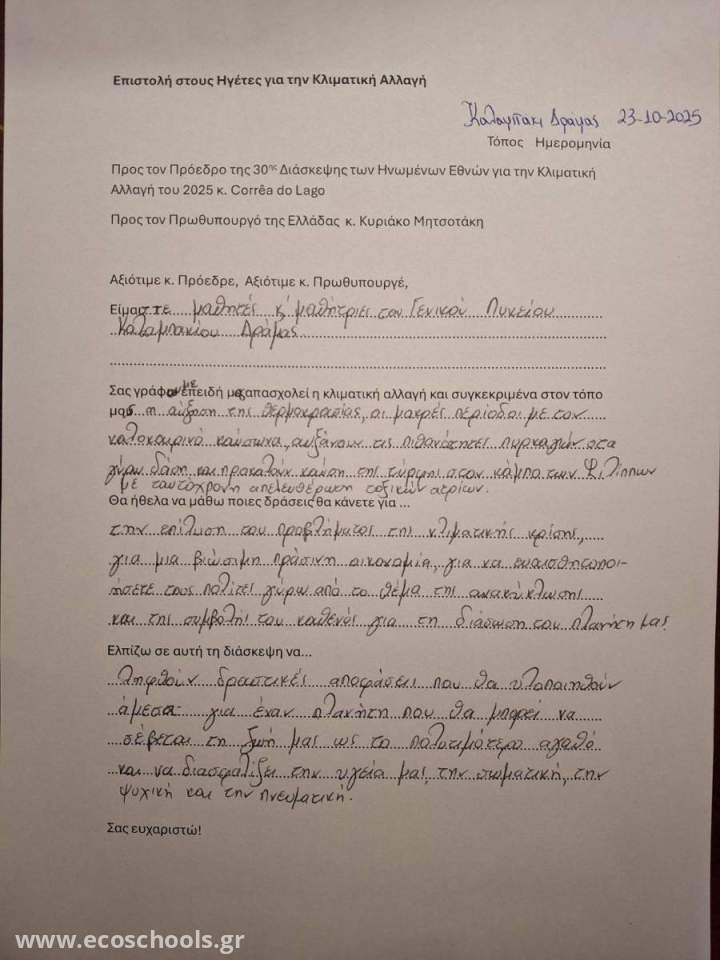 Επιστολή στους Ηγέτες για την Κλιματική Αλλαγή
Καλαμπάκι Δράμας 23-10-2025
Τόπος Ημερομηνία
Προς τον Πρόεδρο της 30ης Διάσκεψης των Ηνωμένων Εθνών για την Κλιματική
Αλλαγή του 2025 κ. Corrêa do Lago
Προς τον Πρωθυπουργό της Ελλάδας κ. Κυριάκο Μητσοτάκη
Αξιότιμε κ. Πρόεδρε, Αξιότιμε κ. Πρωθυπουργέ,
Είμαστε μαθητές κ' μαθήτριες του Γενικού Λυκείου
Καλαμπακίου Δράμας
Σας γράφουμε επειδή μας απασχολεί η κλιματική αλλαγή και συγκεκριμένα στον τόπο
μας η αύξηση της θερμοκρασίας, οι μακρές περίοδοι με τον
καλοκαιρινό καύσωνα, αυξάνουν τις πιθανότητες πυρκαγιών στα
γύρω δάση και προκαλούν καύση της τύρφης στον κάμπο των Φιλίππων
με ταυτόχρονη απελευθέρωση τοξικών αερίων.
Θα ήθελα να μάθω ποιες δράσεις θα κάνετε για ...
την επίλυση του προβλήματος της κλιματικής κρίσης,
για μια βιώσιμη πράσινη οικονομία, για να ευαισθητοποι-
ήσετε τους πολίτες γύρω από το θέμα της ανακύκλωσης
και της συμβολής του καθενός για τη διάσωση του πλανήτη μας
Ελπίζω σε αυτή τη διάσκεψη να...
ληφθούν δραστικές αποφάσεις που θα υλοποιηθούν
άμεσα για έναν πλανήτη που θα μπορεί να
σέβεται τη ζωή μας ως το πολυτιμότερο αγαθό
και να διασφαλίζει την υγεία μας, την σωματική, την
ψυχική και την πνευματική.
Σας ευχαριστώ!
www.ecoschools.gr